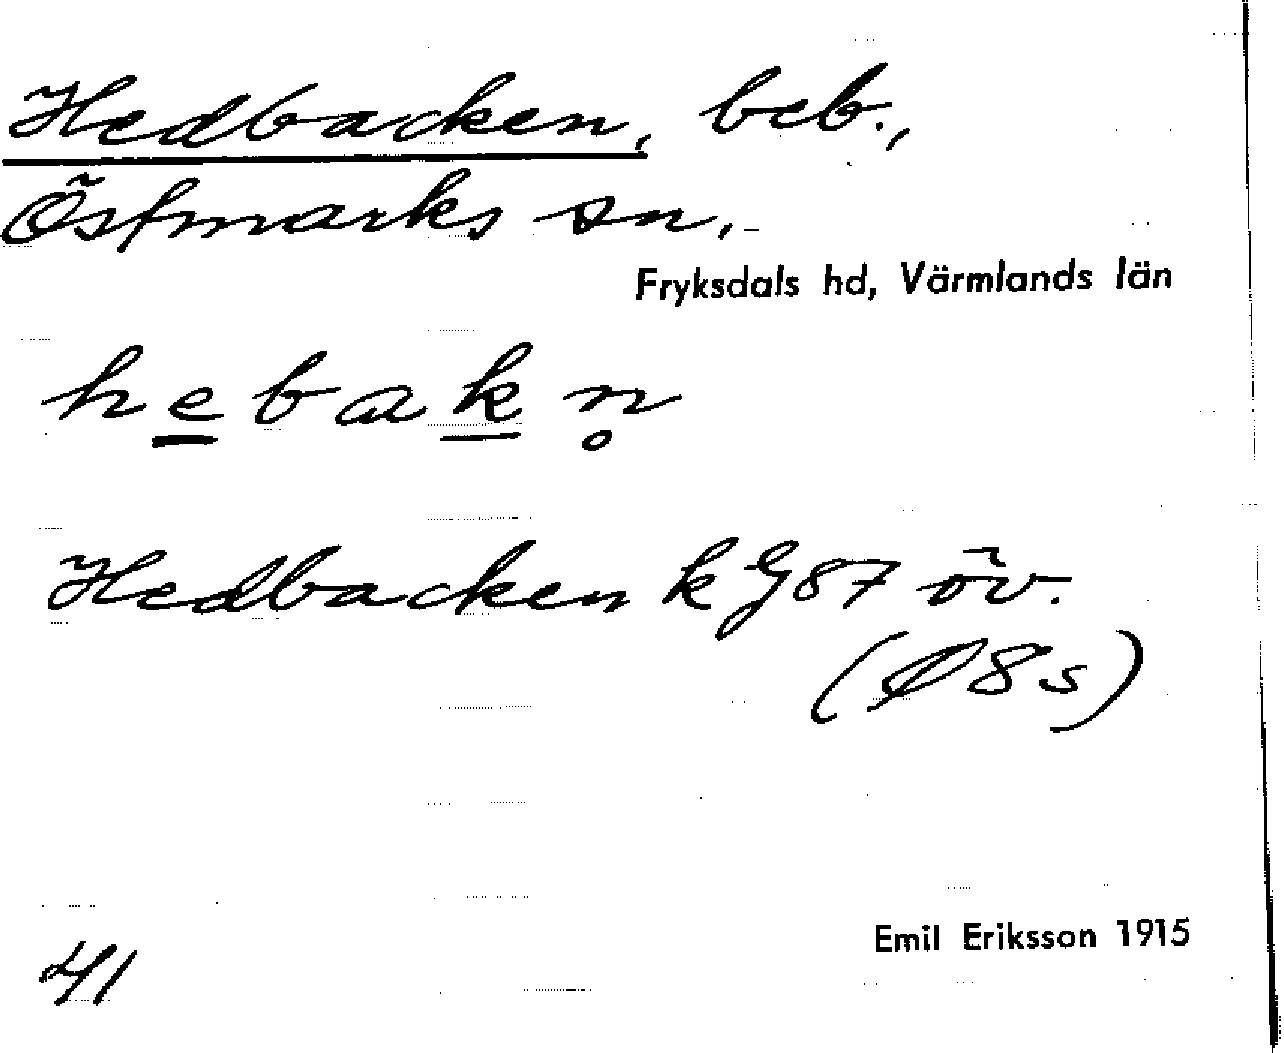 Hedbacken, beb.,
Östmarks sn.
Fryksdals hd, Värmlands län
h e b a k n̥
Hedbacken k G87 öv.
(Ø8s)
Emil Eriksson 1915
41